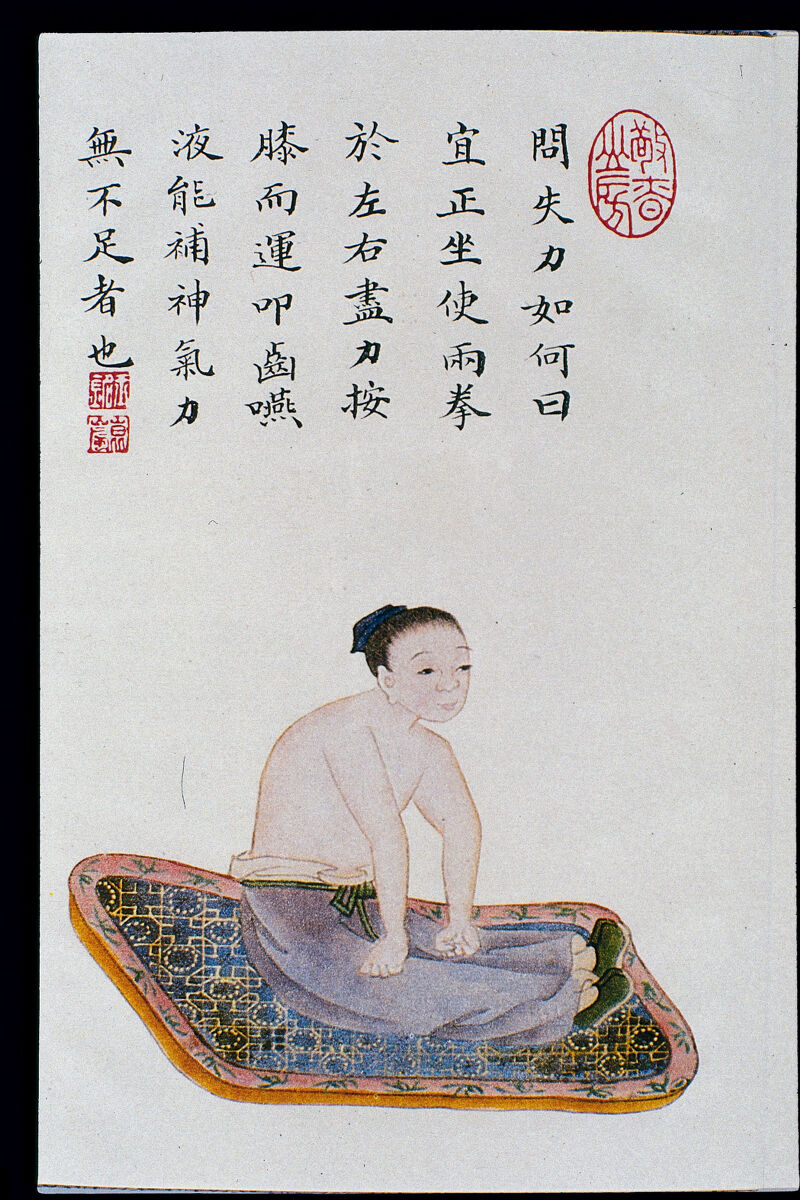 敬者山房
問失力如何曰
宜正坐使兩拳
於左右盡力按
膝而運叩齒嚥
液能補神氣力
無不足者也